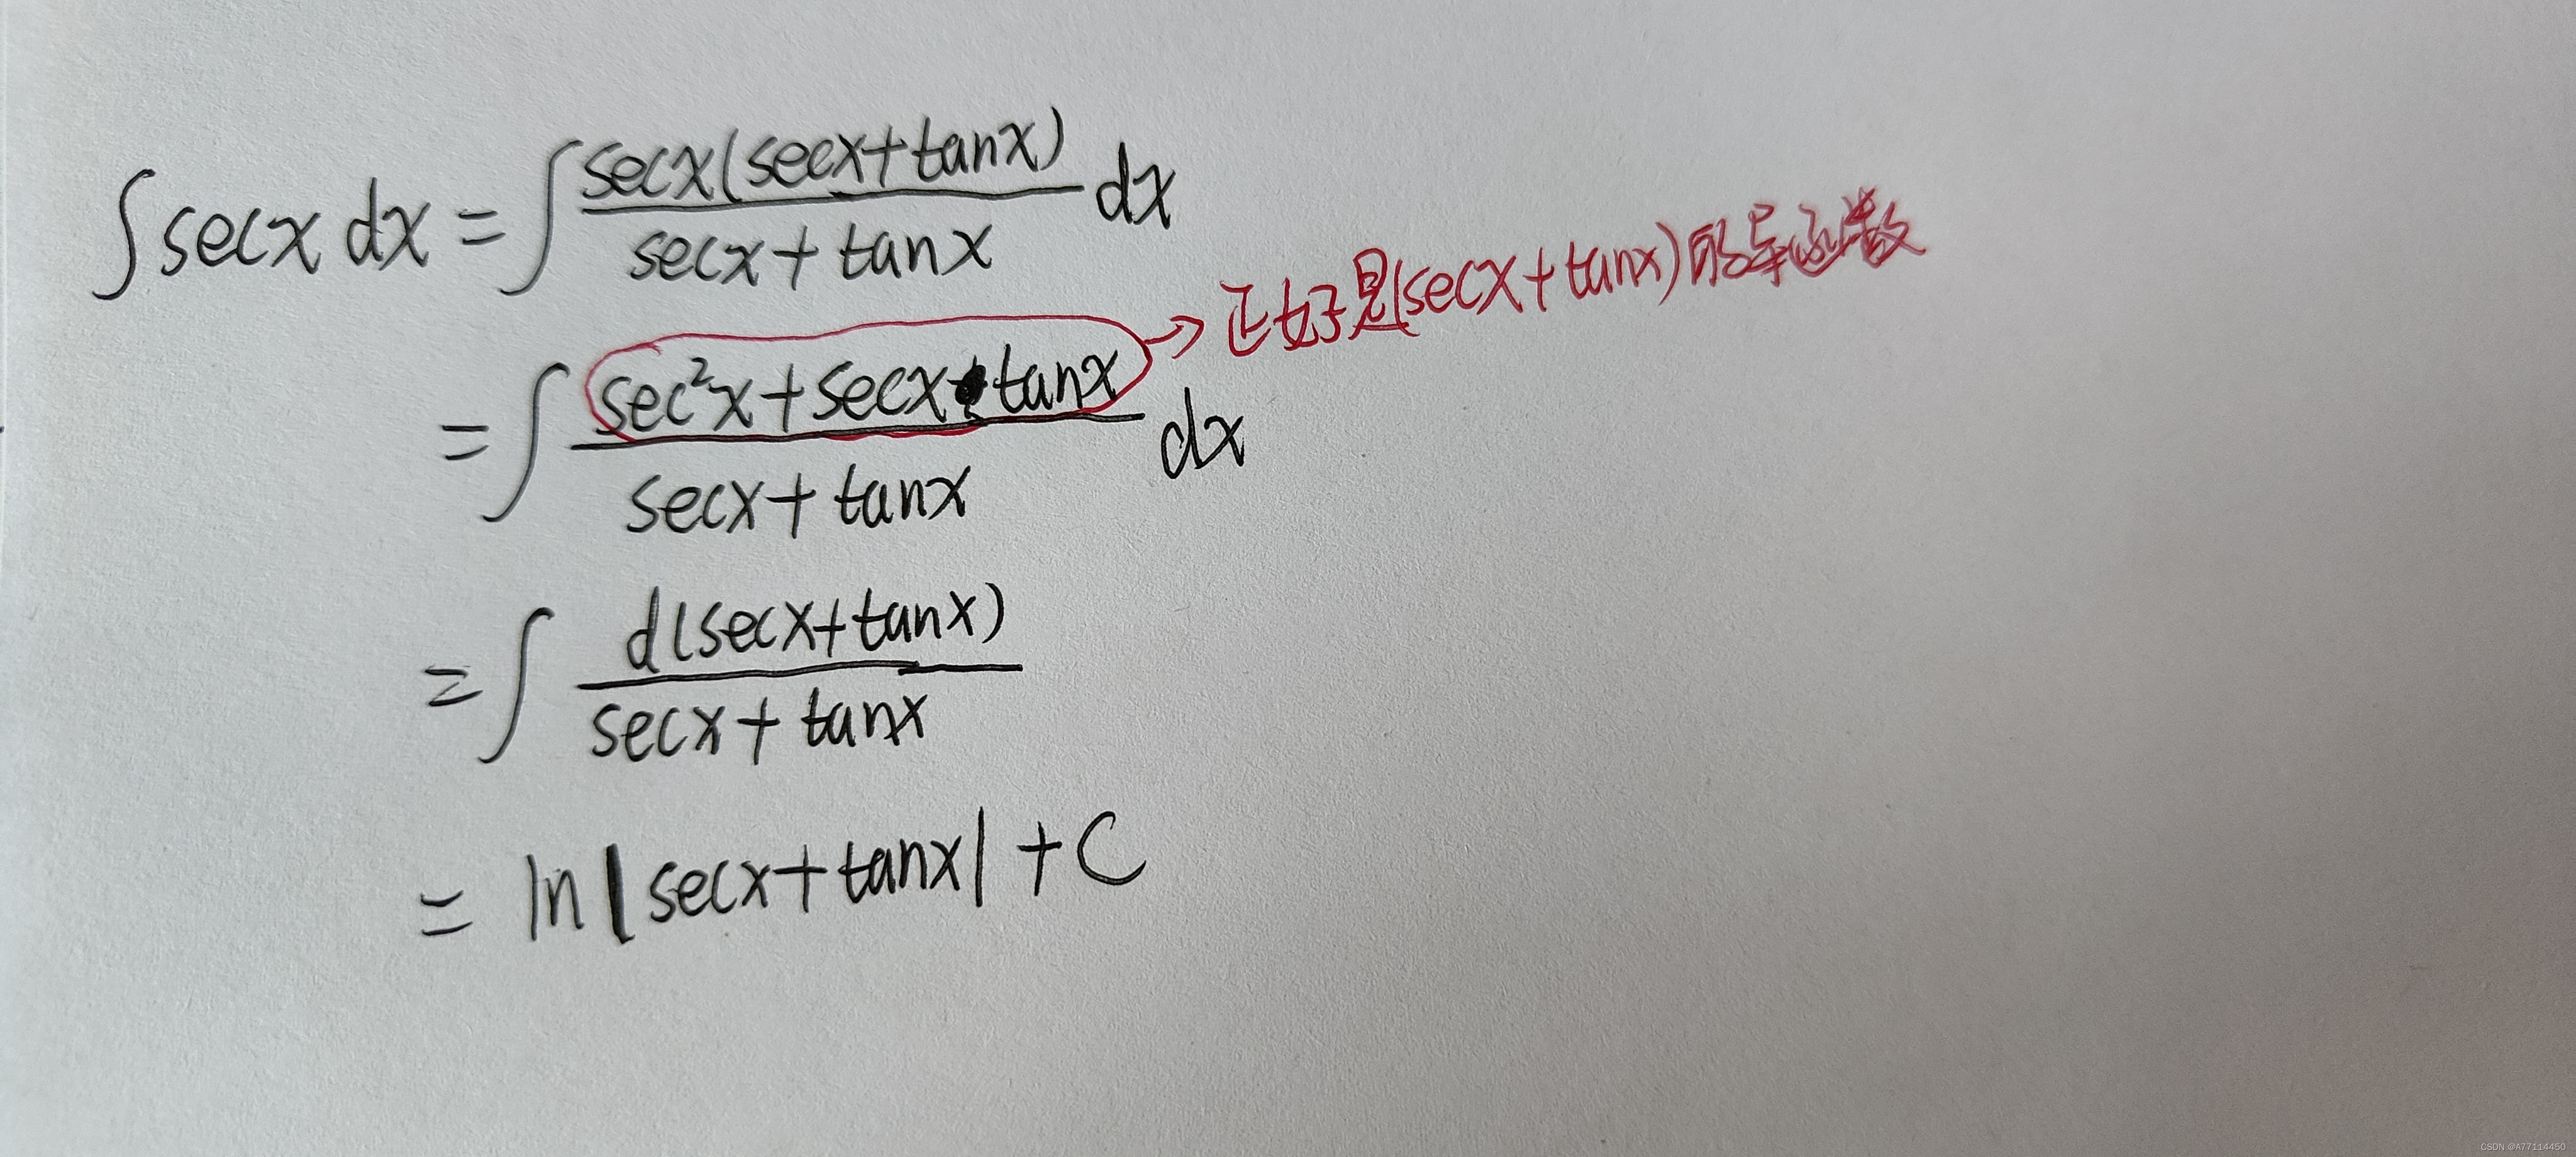 ∫secx dx = ∫ secx(secx+tanx)/(secx+tanx) dx
= ∫ (sec²x+secx·tanx)/(secx+tanx) dx → 正好是(secx+tanx)的导函数
= ∫ d(secx+tanx)/(secx+tanx)
= ln|secx+tanx|+C
CSDN @A77114450